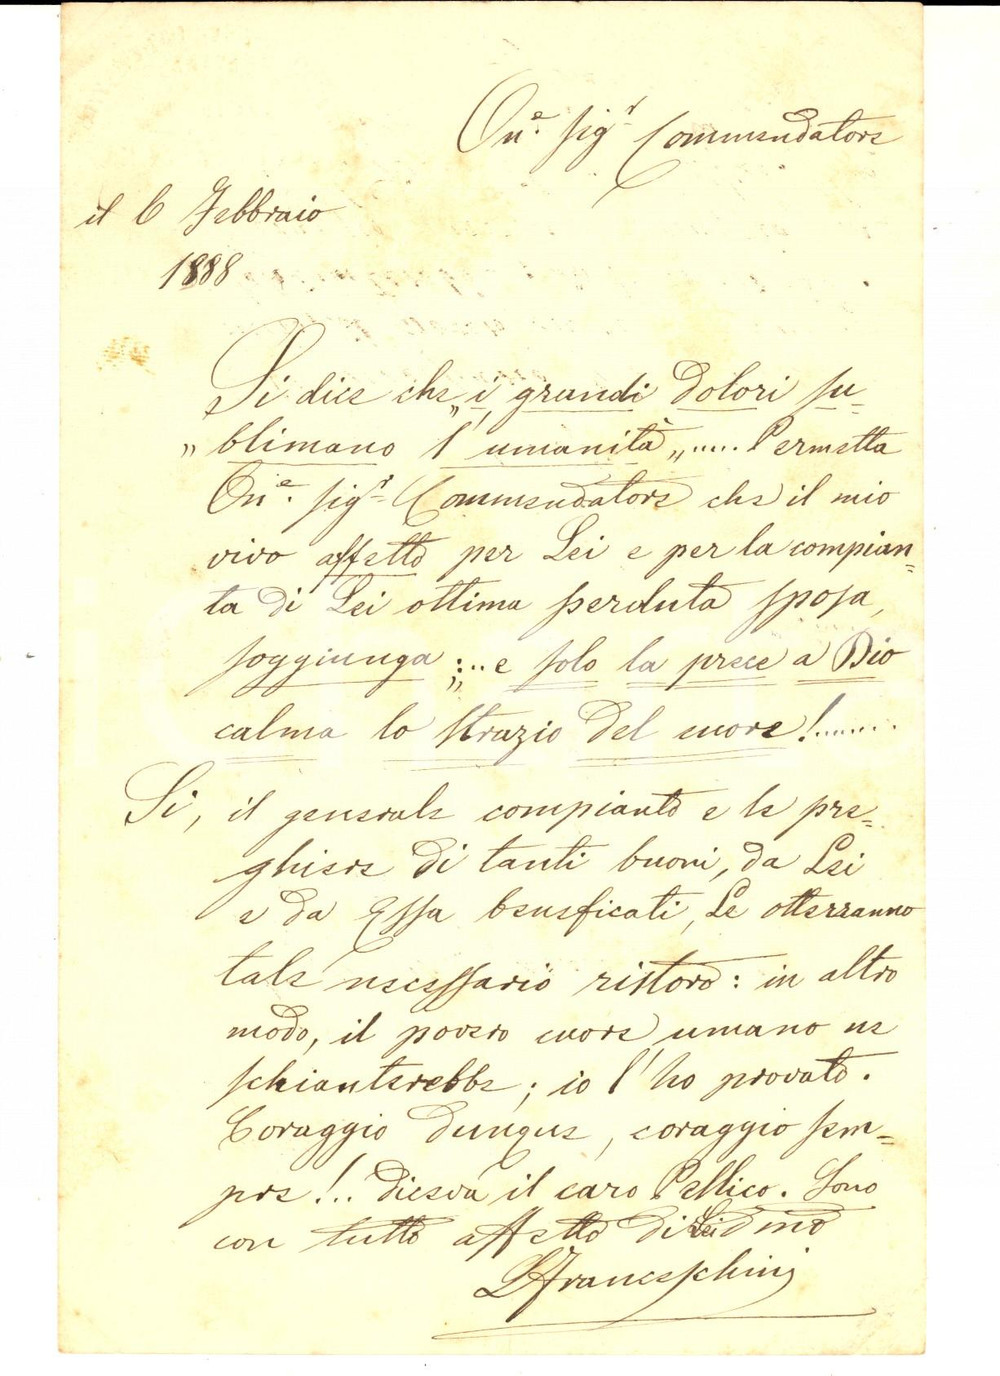 On.e Sig.r Commendatore
il 6 Febbraio
1888
Si dice che „i grandi dolori su-
„blimano l'umanità„..... Permetta
On.e Sig.r Commendatore che il mio
vivo affetto per Lei e per la compian=
ta di Lei ottima perduta sposa,
soggiunga :„... e solo la prece a Dio
calma lo strazio del cuore!.......
Si, il generale compianto e le pre=
ghiere di tanti buoni, da Lei
e da Essa beneficati, Le otterranno
tale necessario ristoro: in altro
modo, il povero cuore umano ne
schianterebbe; io l'ho provato.
Coraggio dunque, coraggio sem=
pre!.. diceva il caro Pellico. Sono
con tutto affetto di Lei d mo
L Franceschini